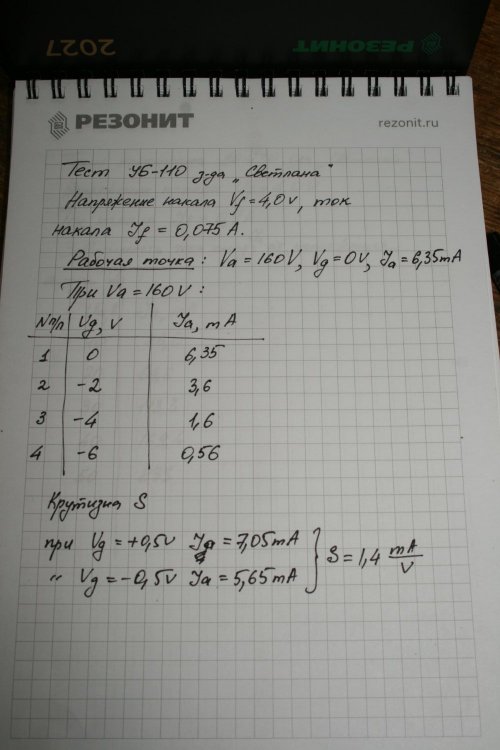 2027
РЕЗОНИТ
РЕЗОНИТ
rezonit.ru
Тест УБ-110 з-да „Светлана"
Напряжение накала Vf = 4,0v, ток
накала If = 0,075А.
Рабочая точка: Va = 160V, Vg = 0V, Ia = 6,35mA
При Va = 160V:
N п/п Vg, V Ia, mA
1 0 6,35
2 -2 3,6
3 -4 1,6
4 -6 0,56
Крутизна S
при Vg = +0,5v Ia = 7,05mA
„ Vg = -0,5v Ia = 5,65mA } S = 1,4 mA/V